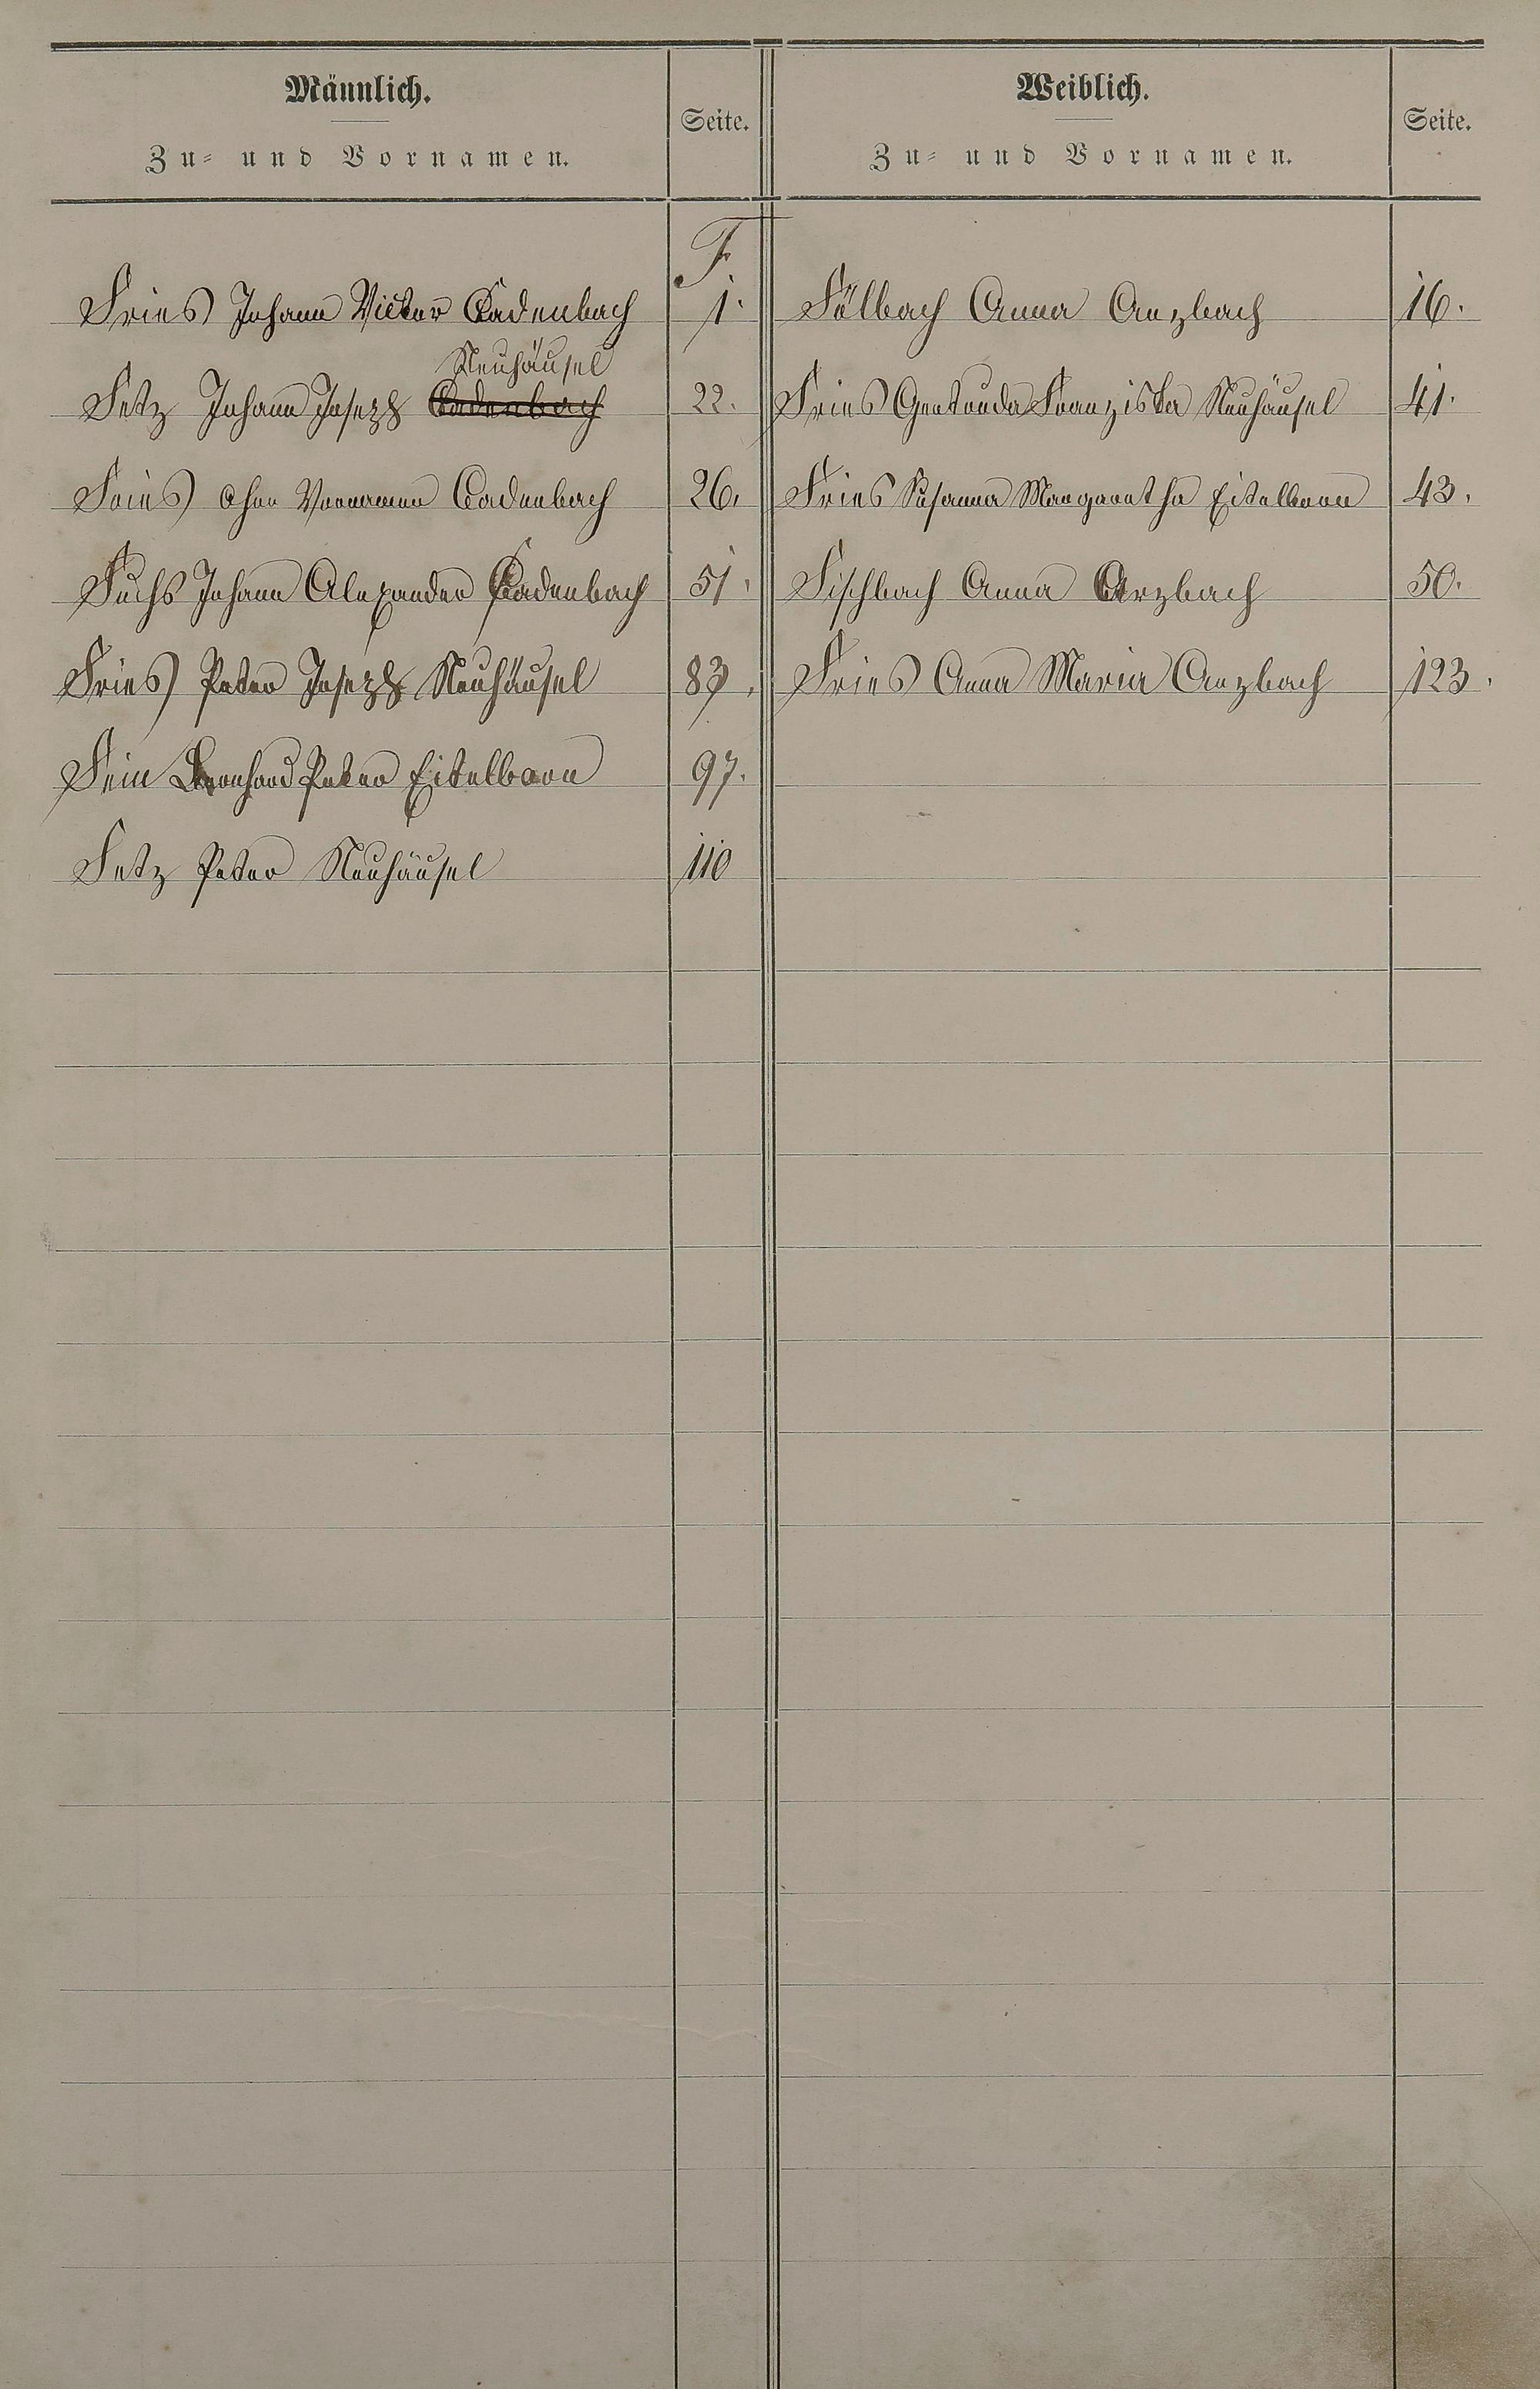 Männlich.
Zu- und Vornamen.
Seite.
Weiblich.
Zu- und Vornamen.
Seite.
F.
Fries Johann Victor Cadenbach 1.
Fölbach Anna Arzbach 16.
Neuhäusel
Fetz Johann Joseph Cadenbach 22.
Fries Gertruda Franziska Neuhäusel 41.
Fries ohne Vornamen Cadenbach 26.
Fries Susanna Margaretha Eitelborn 43.
Fuchs Johann Alexander Cadenbach 51.
Fischbach Anna Arzbach 50.
Fries Peter Joseph Neuhäusel 83.
Fries Anna Maria Arzbach 123.
Fein Bernhard Peter Eitelborn 97.
Fetz Peter Neuhäusel 110